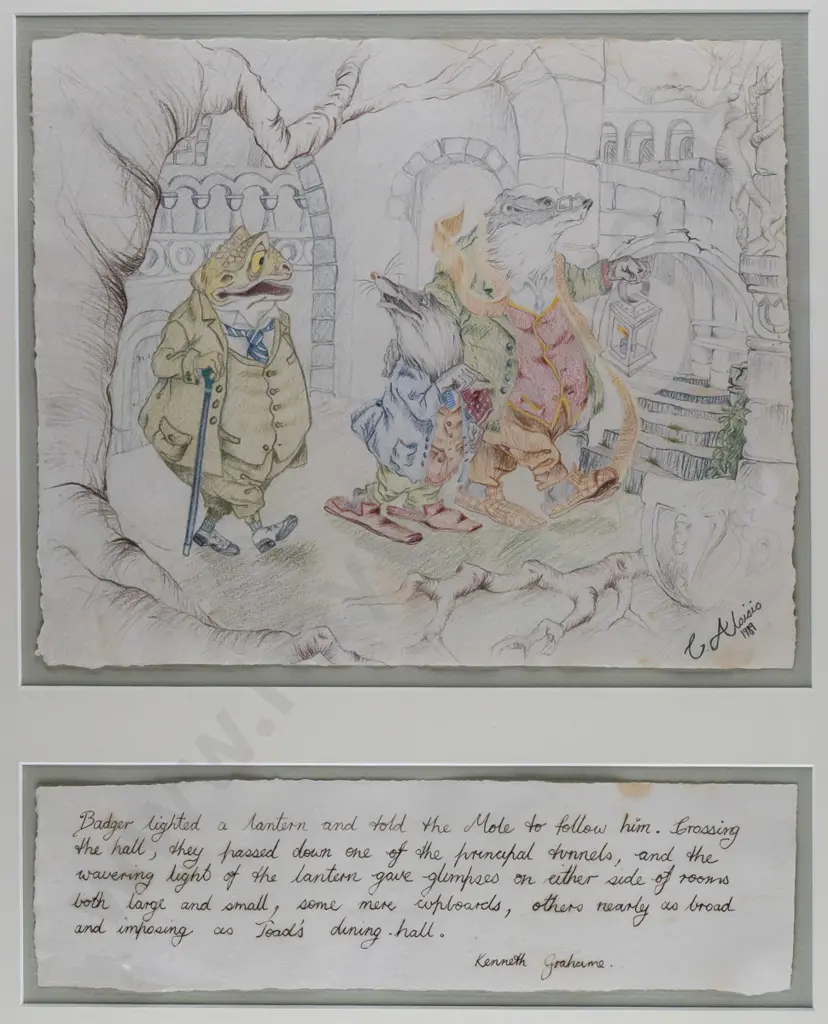 C. Aloisio
1989
Badger lighted a lantern and told the Mole to follow him. Crossing
the hall, they passed down one of the principal tunnels, and the
wavering light of the lantern gave glimpses on either side of rooms
both large and small, some mere cupboards, others nearly as broad
and imposing as Toad's dining-hall.
Kenneth Grahame.
www.